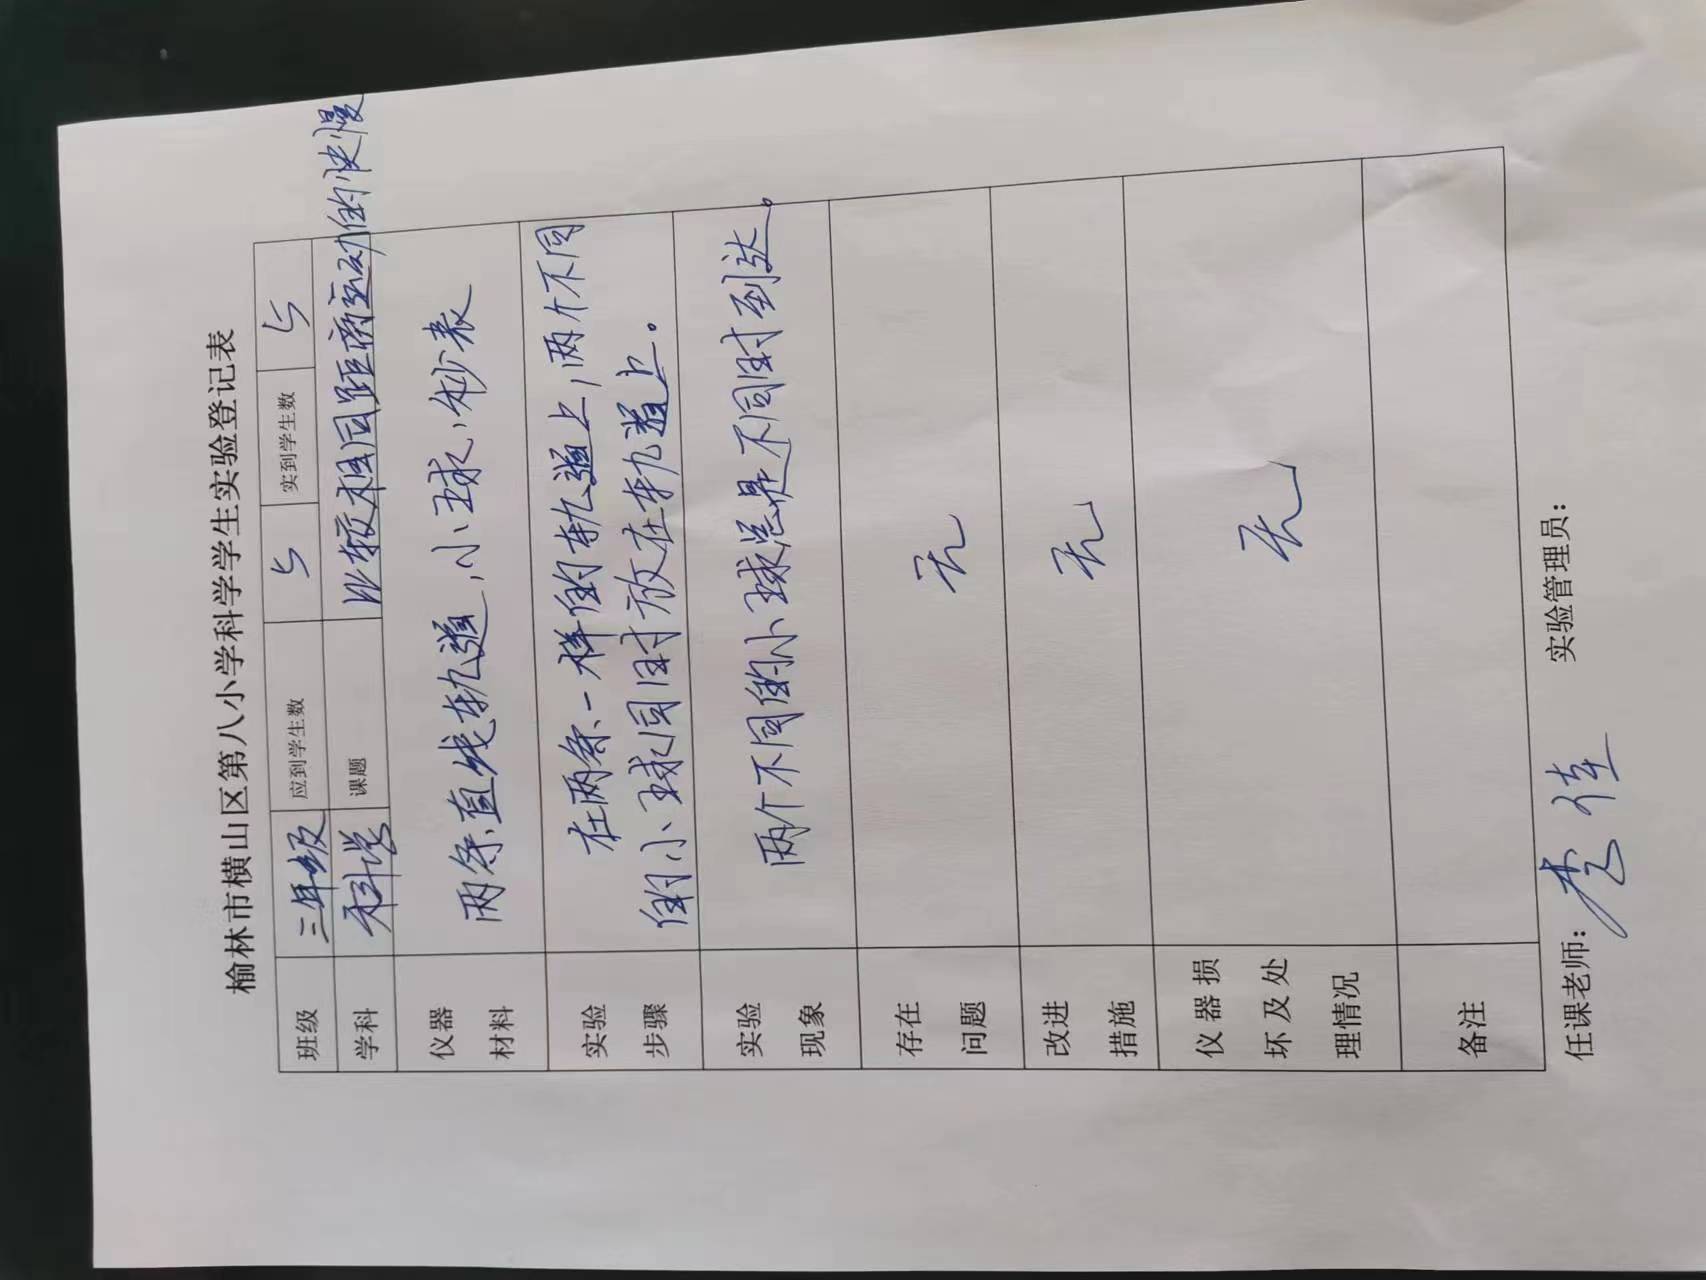 榆林市横山区第八小学科学学生实验登记表
班级 三年级 应到学生数 5 实到学生数 5
学科 科学 课题 比较相同距离运动的快慢
仪器
材料
两条直线轨道,小球,秒表
实验
步骤
在两条一样的轨道上,两个不同
的小球同时放在轨道上。
实验
现象
两个不同的小球总是不同时到达。
存在
问题
无
改进
措施
无
仪器损
坏及处
理情况
无
备注
任课老师: 李佳 实验管理员: